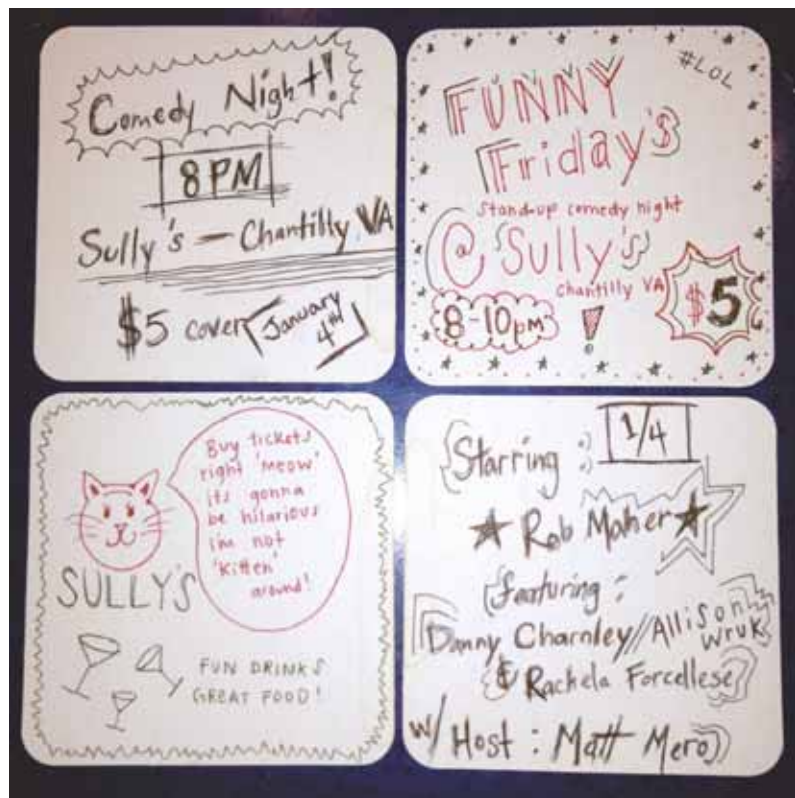 Comedy Night!
8PM
Sully's - Chantilly VA
$5 cover
January
4th
#LOL
FUNNY
Friday's
Stand-up comedy night
@ Sully's
Chantilly VA
8-10pm
!
$5
Buy tickets
right 'meow'
its gonna
be hilarious
i'm not
'kitten'
around!
SULLY'S
FUN DRINKS
GREAT FOOD!
Starring :
1/4
Rob Maher
featuring :
Danny Charnley//Allison
Wruk
& Rachela Forcellese
w/ Host : Matt Mero